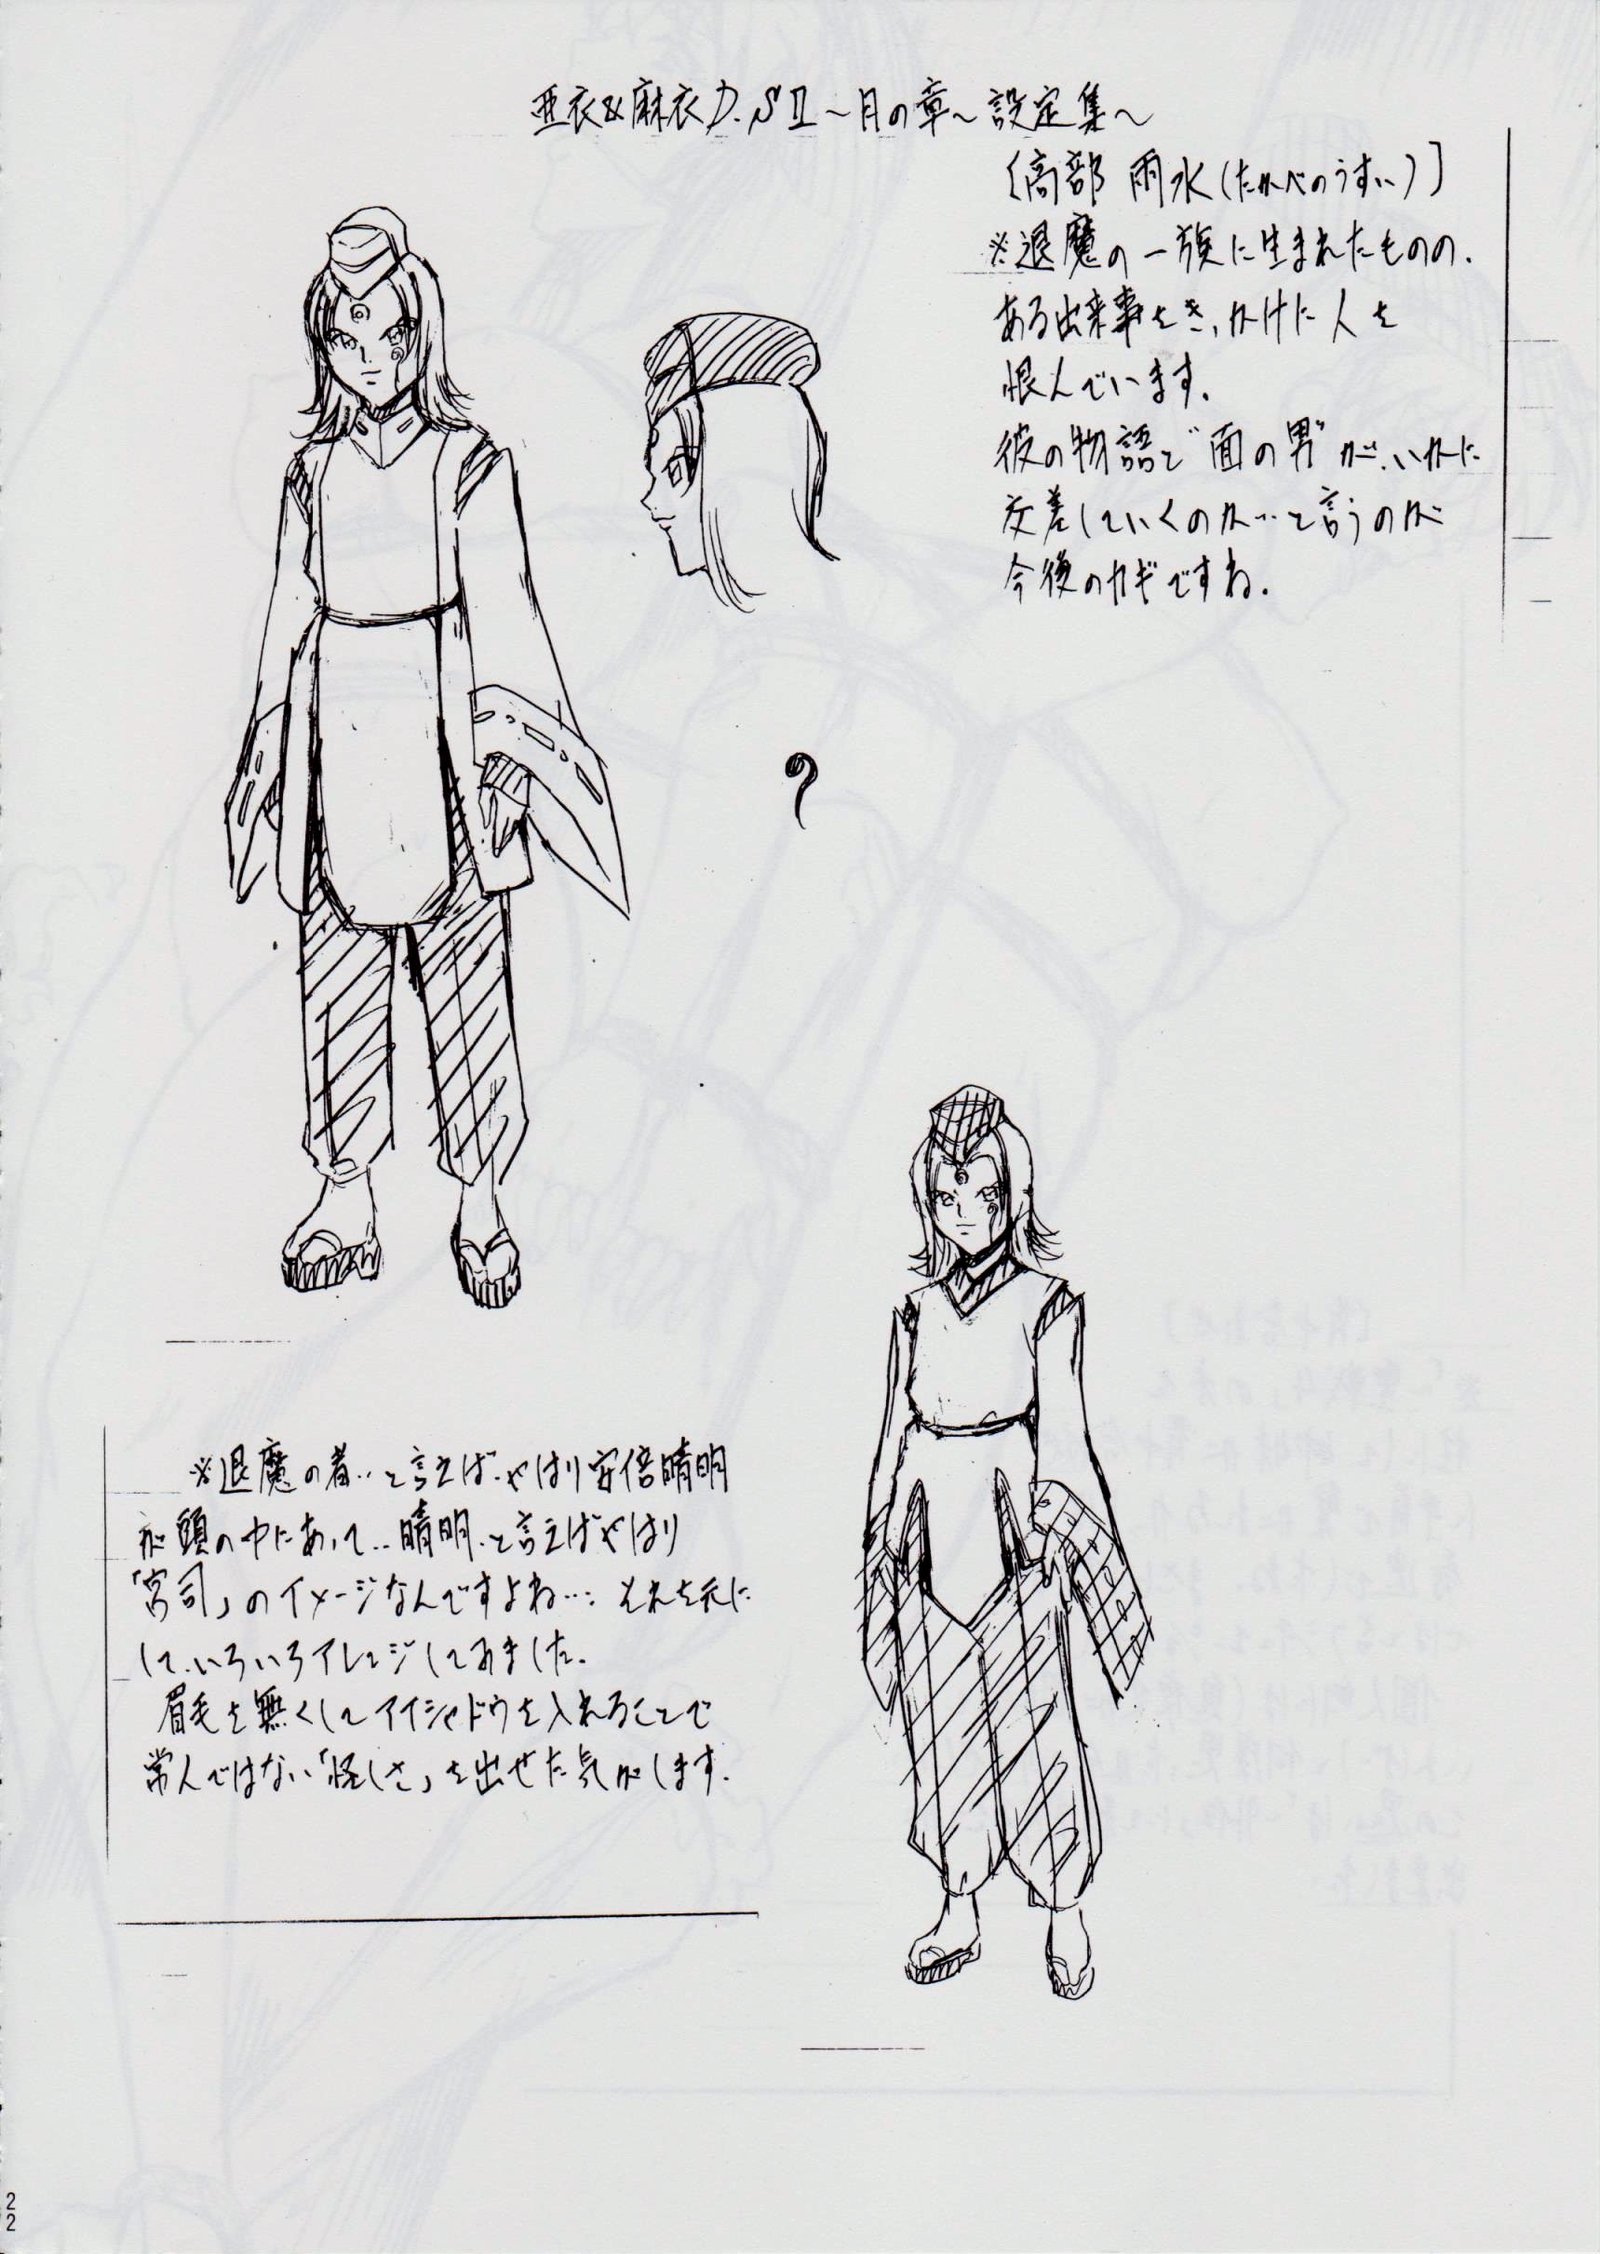 亜衣&麻衣D.SⅡ～月の章～設定集～
〔高部 雨水(たかべのうすい)〕
※退魔の一族に生まれたものの、
ある出来事をきっかけに人を
恨んでいます。
彼の物語と"面の男"が、いかに
交差していくのか…と言うのが
今後のカギですね。
※退魔の者…と言えば、やはり安倍晴明
が頭の中にあって…晴明、と言えばやはり
「宮司」のイメージなんですよね…。それを元に
して、いろいろアレンジしてみました。
眉毛を無くしてアイシャドウを入れることで
常人ではない「怪しさ」を出せた気がします。
22